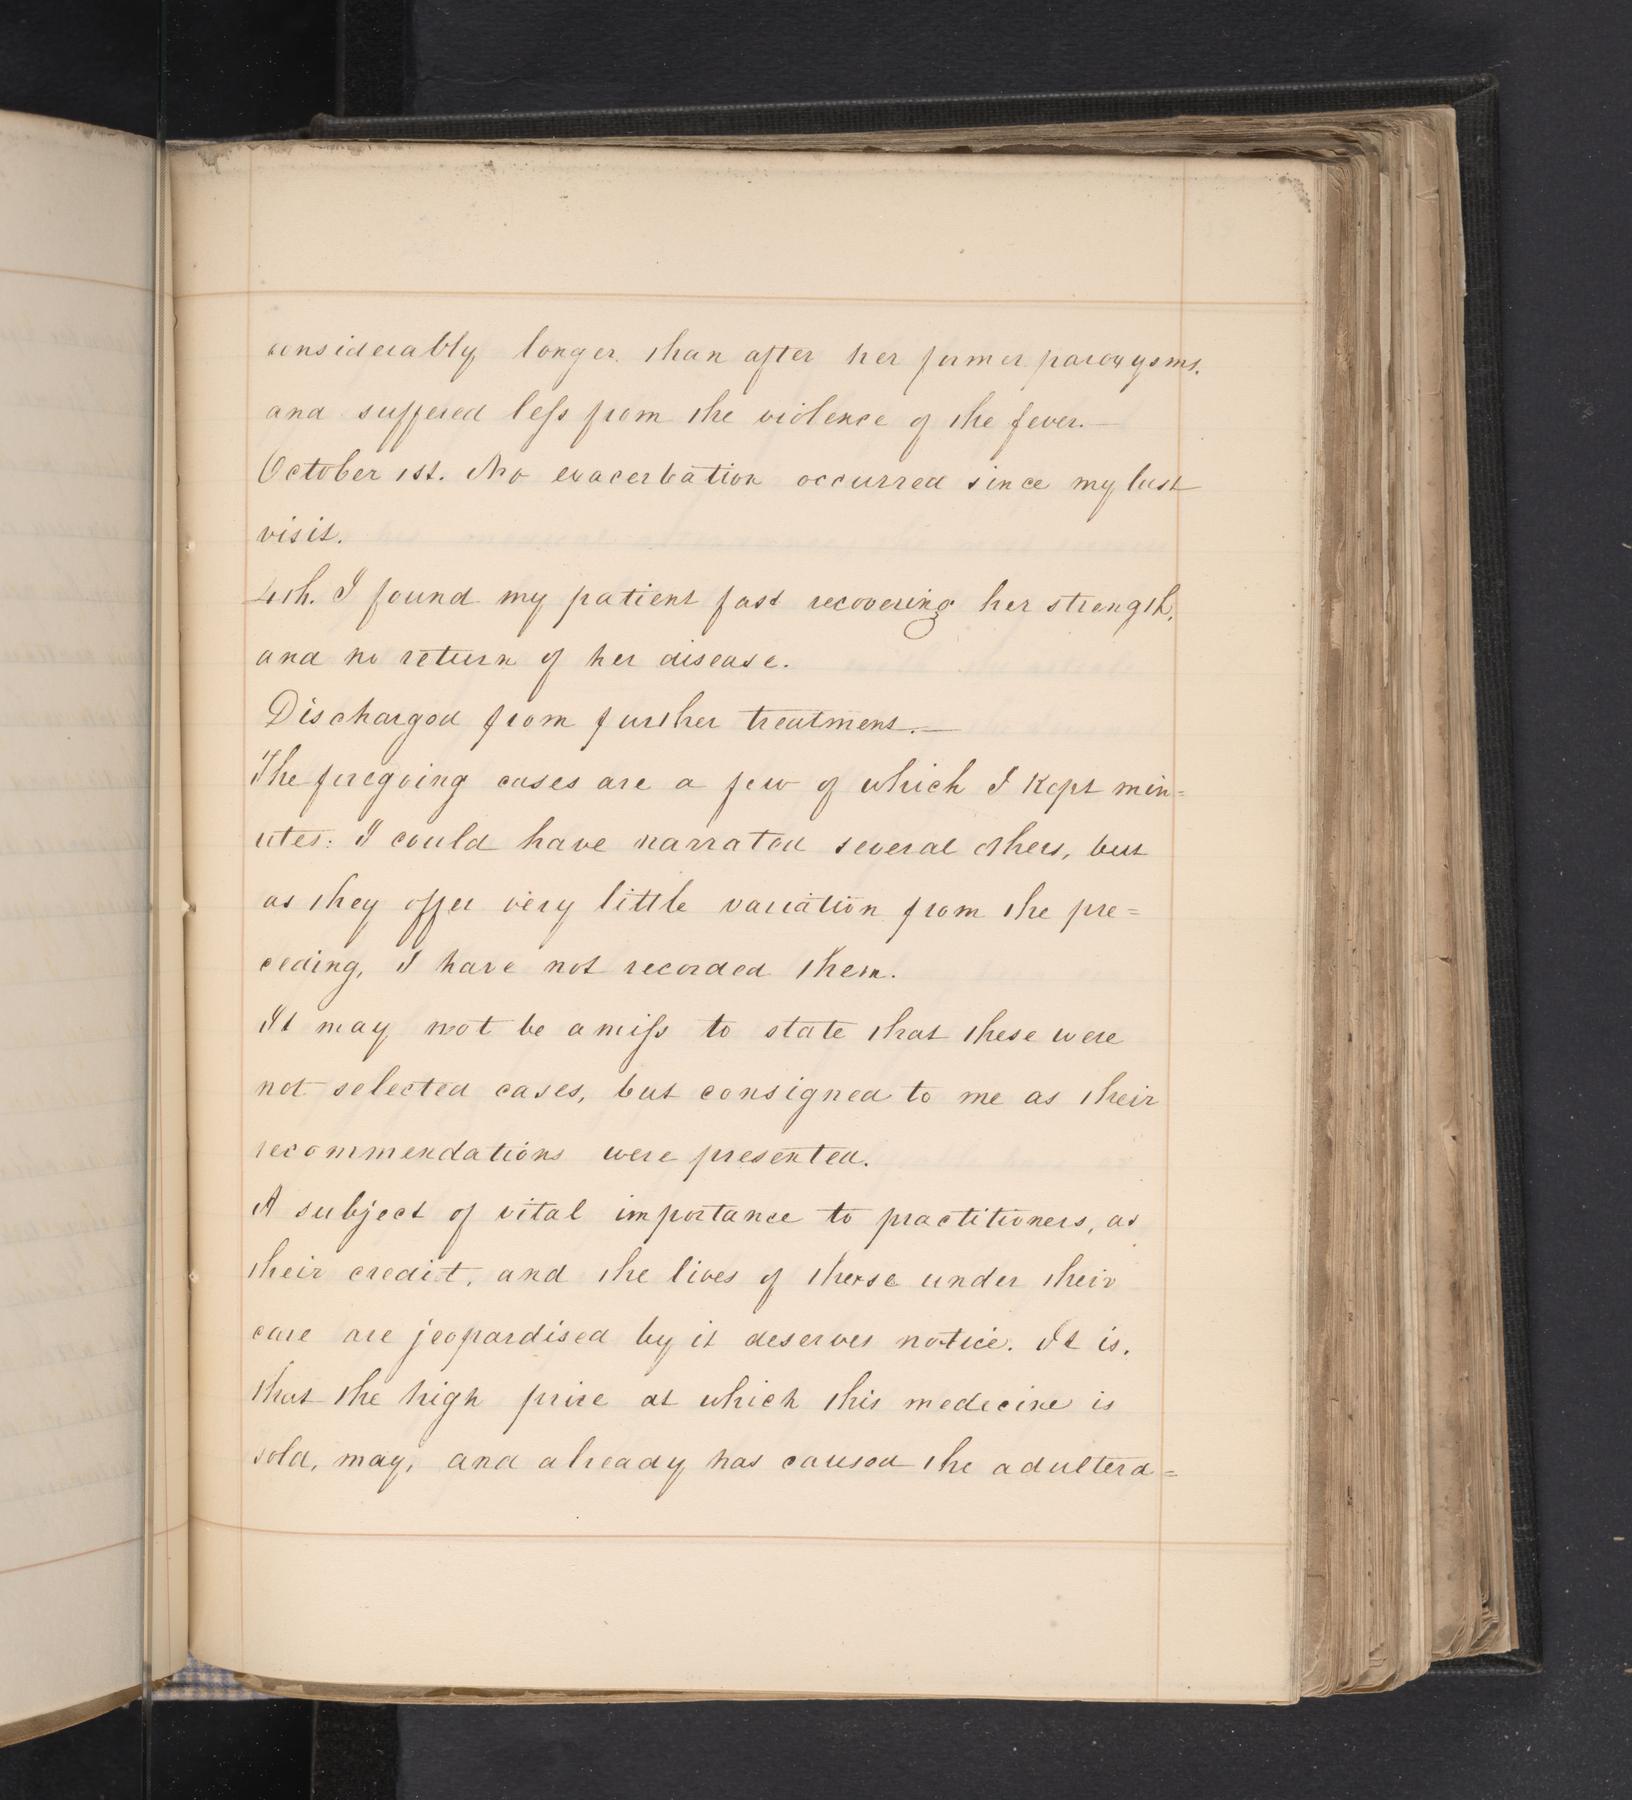 considerably longer than after her former paroxysms.
and suffered less from the violence of the fever.—
October 1st. No exacerbation occurred since my last
visit.
4th. I found my patient fast recovering her strength,
and no return of her disease.
Discharged from further treatment.—
The foregoing cases are a few of which I kept min=
utes: I could have narrated several others, but
as they offer very little variation from the pre=
ceding, I have not recorded them.
It may not be amiss to state that these were
not selected cases, but consigned to me as their
recommendations were presented.
A subject of vital importance to practitioners, as
their credit, and the lives of those under their
care are jeopardised by it deserves notice. It is,
that the high price at which this medecine is
sold, may, and already has caused the adultera=